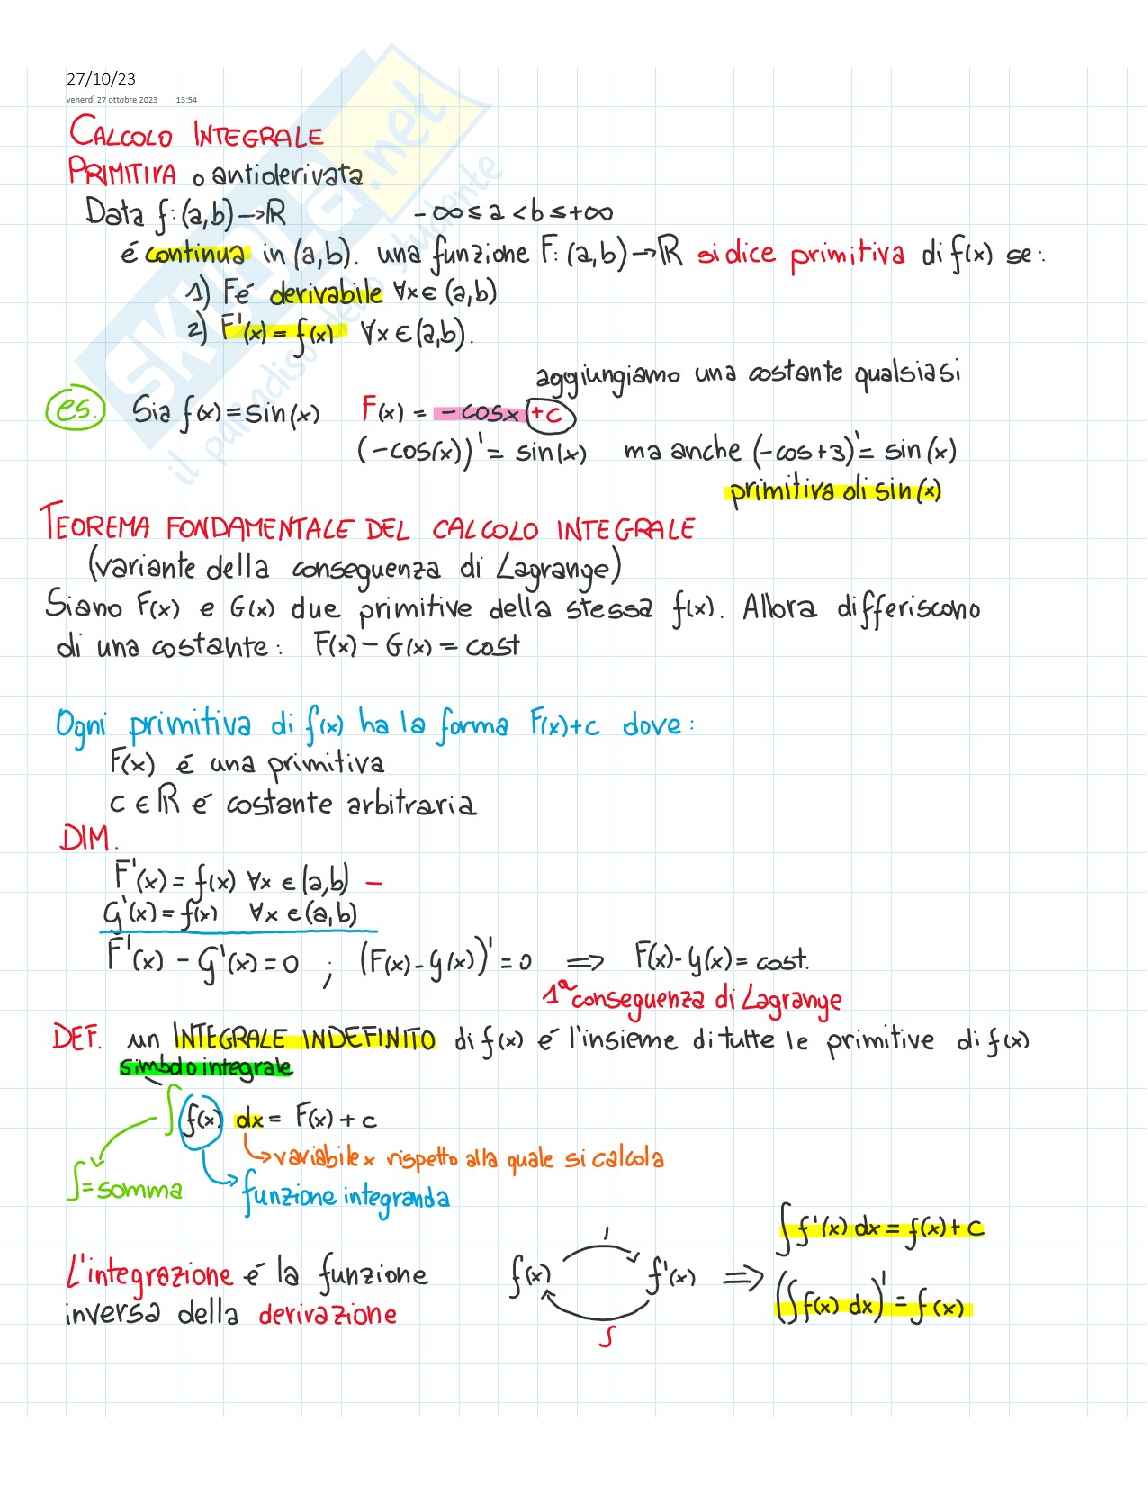 27/10/23
venerdì 27 ottobre 2023 15:54
CALCOLO INTEGRALE
PRIMITIVA o antiderivata
Data f: (a,b) → ℝ -∞ ≤ a < b ≤ +∞
é continua in (a,b). una funzione F: (a,b) → ℝ si dice primitiva di f(x) se:
1) F é derivabile ∀x ∈ (a,b)
2) F'(x) = f(x) ∀x ∈ (a,b).
aggiungiamo una costante qualsiasi
es. Sia f(x) = sin(x) F(x) = -cosx +c
(-cos(x))' = sin(x) ma anche (-cos+3)' = sin(x)
primitiva di sin(x)
TEOREMA FONDAMENTALE DEL CALCOLO INTEGRALE
(variante della conseguenza di Lagrange)
Siano F(x) e G(x) due primitive della stessa f(x). Allora differiscono
di una costante: F(x) - G(x) = cost
Ogni primitiva di f(x) ha la forma F(x)+c dove:
F(x) é una primitiva
c ∈ ℝ é costante arbitraria
DIM.
F'(x) = f(x) ∀x ∈ (a,b) -
G'(x) = f(x) ∀x ∈ (a,b)
F'(x) - G'(x) = 0 ; (F(x) - G(x))' = 0 ⇒ F(x) - G(x) = cost.
1ª conseguenza di Lagrange
DEF. un INTEGRALE INDEFINITO di f(x) é l'insieme di tutte le primitive di f(x)
simbolo integrale
∫ f(x) dx = F(x) + c
→ variabile x rispetto alla quale si calcola
∫ = somma
funzione integranda
∫ f'(x) dx = f(x) + c
L'integrazione é la funzione f(x) ' f'(x) ⇒
inversa della derivazione ∫ (∫ f(x) dx)' = f(x)
SKUOLA.net
il paradiso dello studente